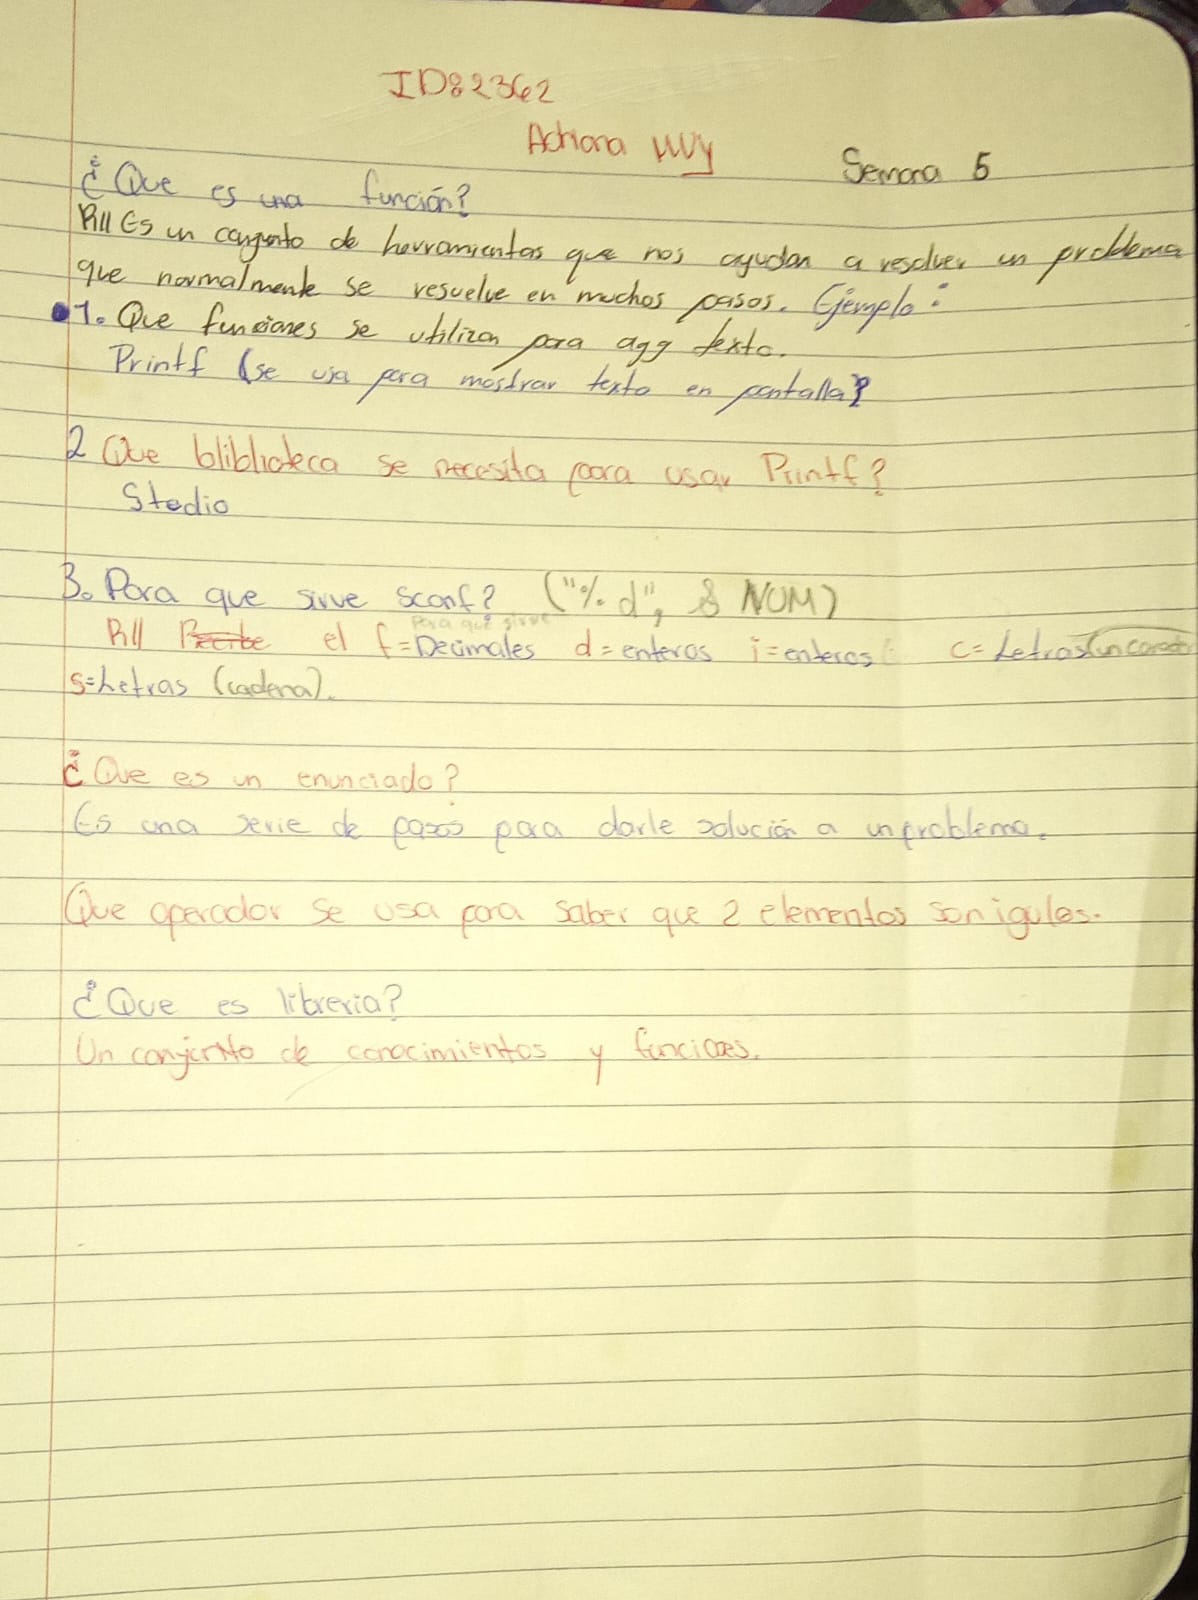 ID:82362
Adriana
Semana 5
¿Que es una función?
R// Es un conjunto de herramientas que nos ayudan a resolver un problema
que normalmente se resuelve en muchos pasos. Ejemplo:
1. Que funciones se utilizan para agg texto.
Printf (se usa para mostrar texto en pantalla)
2 Que bliblioteca se necesita para usar Printf?
Stedio
3. Para que sirve Scanf? ("%d", & NUM)
Para que sirve
R// Recibe el f=Decimales d=enteros i=enteros c=Letras (un caracter
s=Letras (cadena).
¿Que es un enunciado?
Es una serie de pasos para darle solución a un problema.
Que operador se usa para saber que 2 elementos son igules.
¿Que es libreria?
Un conjunto de conocimientos y funciones.